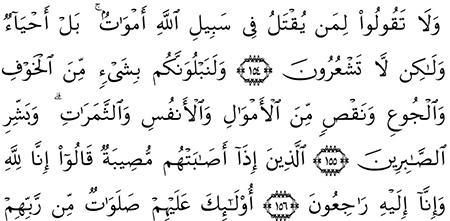 وَلَا تَقُولُوا۟ لِمَن يُقْتَلُ فِى سَبِيلِ ٱللَّهِ أَمْوَٰتٌۢ ۚ بَلْ أَحْيَآءٌ
وَلَٰكِن لَّا تَشْعُرُونَ ١٥٤ وَلَنَبْلُوَنَّكُم بِشَىْءٍ مِّنَ ٱلْخَوْفِ
وَٱلْجُوعِ وَنَقْصٍ مِّنَ ٱلْأَمْوَٰلِ وَٱلْأَنفُسِ وَٱلثَّمَرَٰتِ ۗ وَبَشِّرِ
ٱلصَّٰبِرِينَ ١٥٥ ٱلَّذِينَ إِذَآ أَصَٰبَتْهُم مُّصِيبَةٌ قَالُوٓا۟ إِنَّا لِلَّهِ
وَإِنَّآ إِلَيْهِ رَٰجِعُونَ ١٥٦ أُو۟لَٰٓئِكَ عَلَيْهِمْ صَلَوَٰتٌ مِّن رَّبِّهِمْ